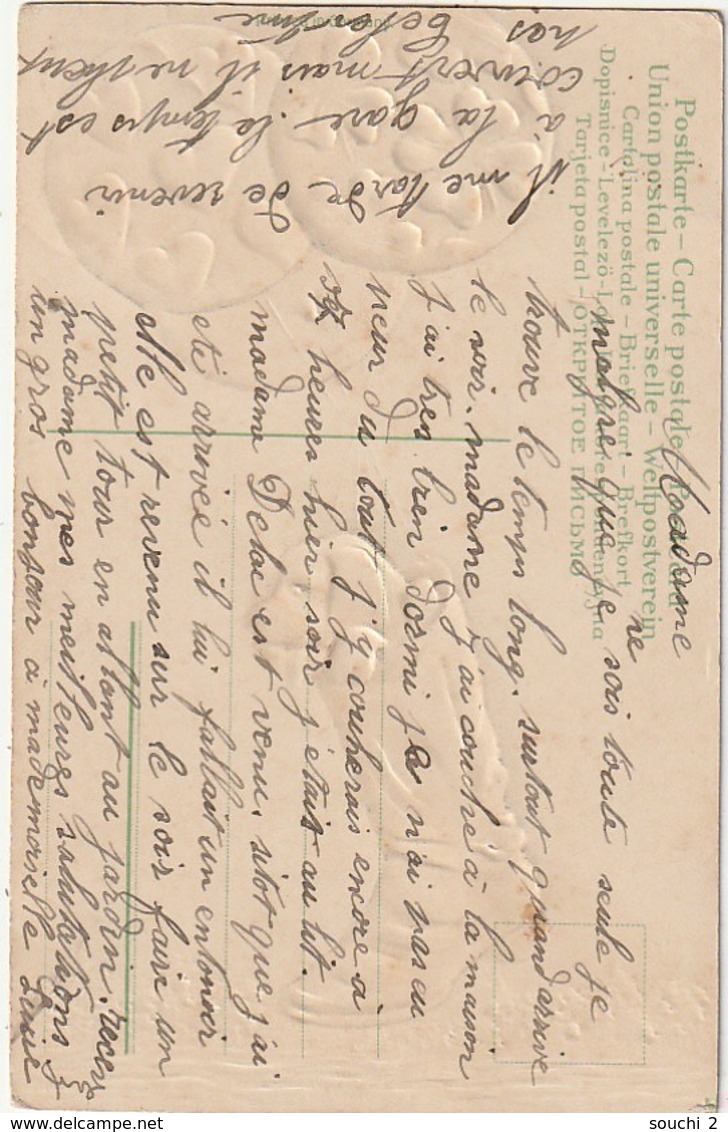 Postkarte – Carte postale
Union postale universelle – Weltpostverein
Cartolina postale – Briefkaart – Brefkort
Dopisnice – Levelező-L
Tarjeta postal – ОТКРЫТОЕ ПИСЬМО
Madame
malgres que je ne sois toute seule je
trouve le temps long. surtout quand arrive
le soir. madame j'ai couché à la maison
j'ai tres bien dormi je n'ai pas eu
peur du tout j'y coucherais encore à
heures hier soir j'étais au lit.
madame Delac est venu. sitot que j'ai
eté arrivée il lui fallait un entonoir
elle est revenu sur le soir faire un
petit tour en allant au jardin. recevez
madame mes meilleures salutations
un gros bonsoir à mademoiselle
il me tarde de revenir
à la gare. le temps est
couvert mais il ne pleut
pas
souchi 2